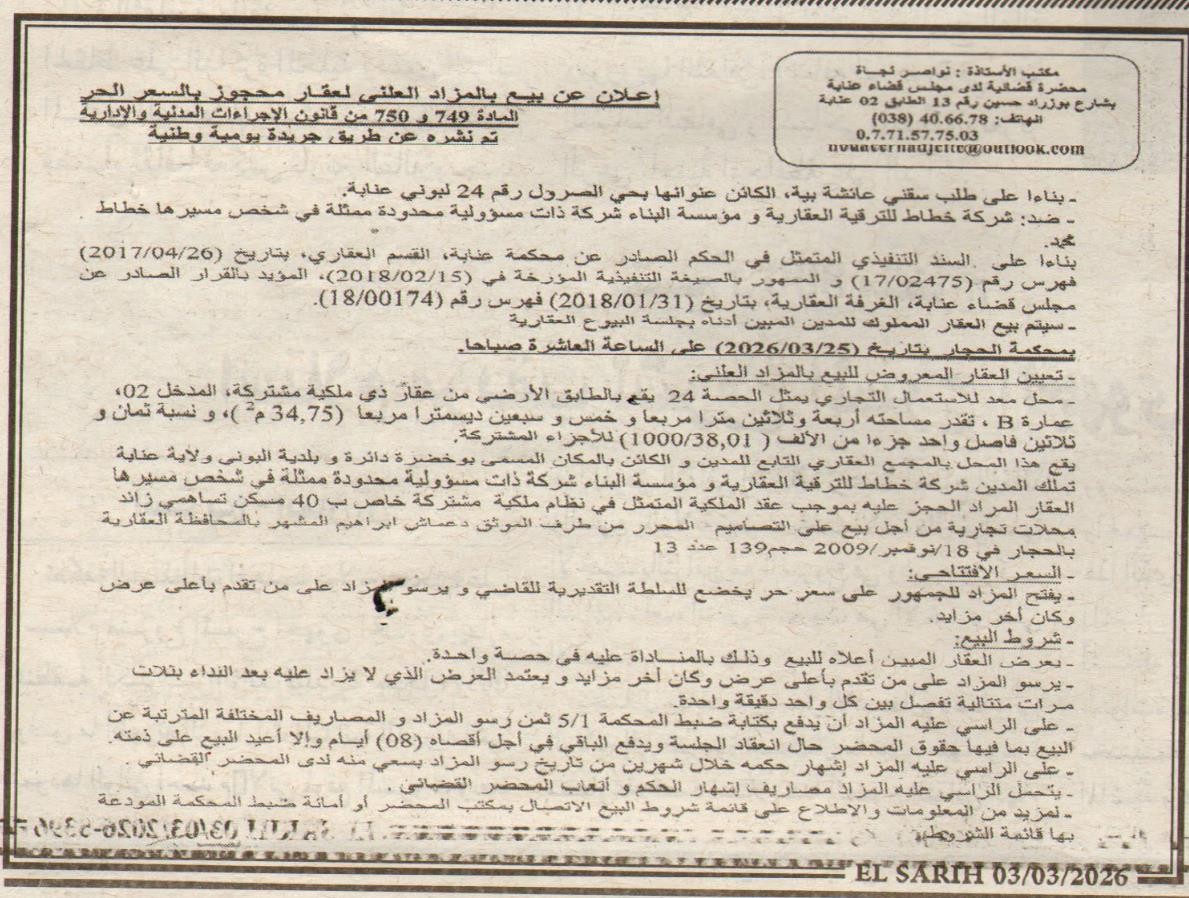 مكتب الأستاذة : نواصر نجاة
محضرة قضائية لدى مجلس قضاء عنابة
بشارع بوزراد حسين رقم 13 الطابق 02 عنابة
الهاتف: 40.66.78 (038)
0.7.71.57.75.03
nouacernadjette@outlook.com
إعلان عن بيع بالمزاد العلني لعقار محجوز بالسعر الحر
المادة 749 و 750 من قانون الإجراءات المدنية والإدارية
تم نشره عن طريق جريدة يومية وطنية
ـ بناءا على طلب سقني عائشة بية، الكائن عنوانها بحي الصرول رقم 24 لبوني عنابة.
ـ ضد: شركة خطاط للترقية العقارية و مؤسسة البناء شركة ذات مسؤولية محدودة ممثلة في شخص مسيرها خطاط
محمد.
بناءا على السند التنفيذي المتمثل في الحكم الصادر عن محكمة عنابة، القسم العقاري، بتاريخ (2017/04/26)
فهرس رقم (17/02475) و الممهور بالصيغة التنفيذية المؤرخة في (2018/02/15)، المؤيد بالقرار الصادر عن
مجلس قضاء عنابة، الغرفة العقارية، بتاريخ (2018/01/31) فهرس رقم (18/00174).
ـ سيتم بيع العقار المملوك للمدين المبين أدناه بجلسة البيوع العقارية
بمحكمة الحجار بتاريخ (2026/03/25) على الساعة العاشرة صباحا.
ـ تعيين العقار المعروض للبيع بالمزاد العلني:
ـ محل معد للاستعمال التجاري يمثل الحصة 24 يقع بالطابق الأرضي من عقار ذي ملكية مشتركة، المدخل 02،
عمارة B ، تقدر مساحته أربعة وثلاثين مترا مربعا و خمس و سبعين ديسمترا مربعا (34,75 م²)، و نسبة ثمان و
ثلاثين فاصل واحد جزءا من الألف ( 1000/38,01) للأجزاء المشتركة.
يقع هذا المحل بالمجمع العقاري التابع للمدين و الكائن بالمكان المسمى بوخضرة دائرة و بلدية البوني ولاية عنابة
تملك المدين شركة خطاط للترقية العقارية و مؤسسة البناء شركة ذات مسؤولية محدودة ممثلة في شخص مسيرها
العقار المراد الحجز عليه بموجب عقد الملكية المتمثل في نظام ملكية مشتركة خاص ب 40 مسكن تساهمي زائد
محلات تجارية من أجل بيع على التصاميم المحرر من طرف الموثق دعماش ابراهيم المشهر بالمحافظة العقارية
بالحجار في 18/نوفمبر/2009 حجم139 عدد 13
ـ السعر الافتتاحي:
ـ يفتح المزاد للجمهور على سعر حر يخضع للسلطة التقديرية للقاضي و يرسو المزاد على من تقدم بأعلى عرض
وكان أخر مزايد.
ـ شروط البيع:
ـ يعرض العقار المبين أعلاه للبيع وذلك بالمناداة عليه في حصة واحدة.
ـ يرسو المزاد على من تقدم بأعلى عرض وكان أخر مزايد و يعتمد العرض الذي لا يزاد عليه بعد النداء بثلات
مرات متتالية تفصل بين كل واحد دقيقة واحدة.
ـ على الراسي عليه المزاد أن يدفع بكتابة ضبط المحكمة 5/1 ثمن رسو المزاد و المصاريف المختلفة المترتبة عن
البيع بما فيها حقوق المحضر حال انعقاد الجلسة ويدفع الباقي في أجل أقصاه (08) أيام وإلا أعيد البيع على ذمته.
ـ على الراسي عليه المزاد إشهار حكمه خلال شهرين من تاريخ رسو المزاد بسعي منه لدى المحضر القضائي .
ـ يتحمل الراسي عليه المزاد مصاريف إشهار الحكم و أتعاب المحضر القضائي .
ـ لمزيد من المعلومات والاطلاع على قائمة شروط البيع الاتصال بمكتب المحضر أو أمانة ضبط المحكمة المودعة
بها قائمة الشروط.
EL SARIH 03/03/2026